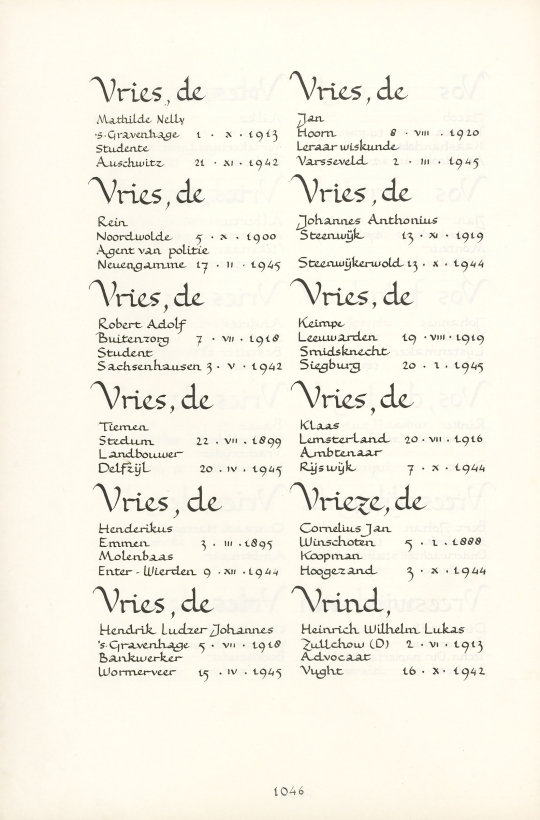 Vries, de
Mathilde Nelly
's-Gravenhage 1 · X · 1913
Studente
Auschwitz 21 · XI · 1942
Vries, de
Rein
Noordwolde 5 · X · 1900
Agent van politie
Neuengamme 17 · II · 1945
Vries, de
Robert Adolf
Buitenzorg 7 · VII · 1918
Student
Sachsenhausen 3 · V · 1942
Vries, de
Tiemen
Stedum 22 · VII · 1899
Landbouwer
Delfzijl 20 · IV · 1945
Vries, de
Henderikus
Emmen 3 · III · 1895
Molenbaas
Enter - Wierden 9 · XII · 1944
Vries, de
Hendrik Ludzer Johannes
's-Gravenhage 5 · VII · 1918
Bankwerker
Wormerveer 15 · IV · 1945
Vries, de
Jan
Hoorn 8 · VIII · 1920
Leraar wiskunde
Varsseveld 2 · III · 1945
Vries, de
Johannes Anthonius
Steenwijk 13 · XI · 1919
Steenwijkerwold 13 · X · 1944
Vries, de
Keimpe
Leeuwarden 19 · VIII · 1919
Smidsknecht
Siegburg 20 · I · 1945
Vries, de
Klaas
Lemsterland 20 · VII · 1916
Ambtenaar
Rijswijk 7 · X · 1944
Vrieze, de
Cornelius Jan
Winschoten 5 · I · 1888
Koopman
Hoogezand 3 · X · 1944
Vrind,
Heinrich Wilhelm Lukas
Züllchow (D) 2 · VI · 1913
Advocaat
Vught 16 · X · 1942
1046